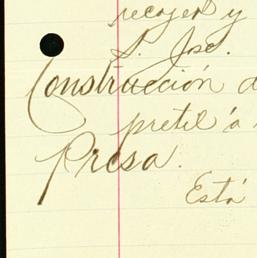 recojer y
S. José.
Construcción d
pretil á
Presa.
Está